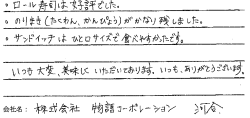 。ロール寿司は好評でした。
。のりまき(たくわん、かんぴょう)がかなり残しました。
。サンドイッチは ひと口サイズで食べやすかったです。
いつも大変、美味しくいただいております。いつも、ありがとうございます。
会社名: 株式会社 物語コーポレーション 河合